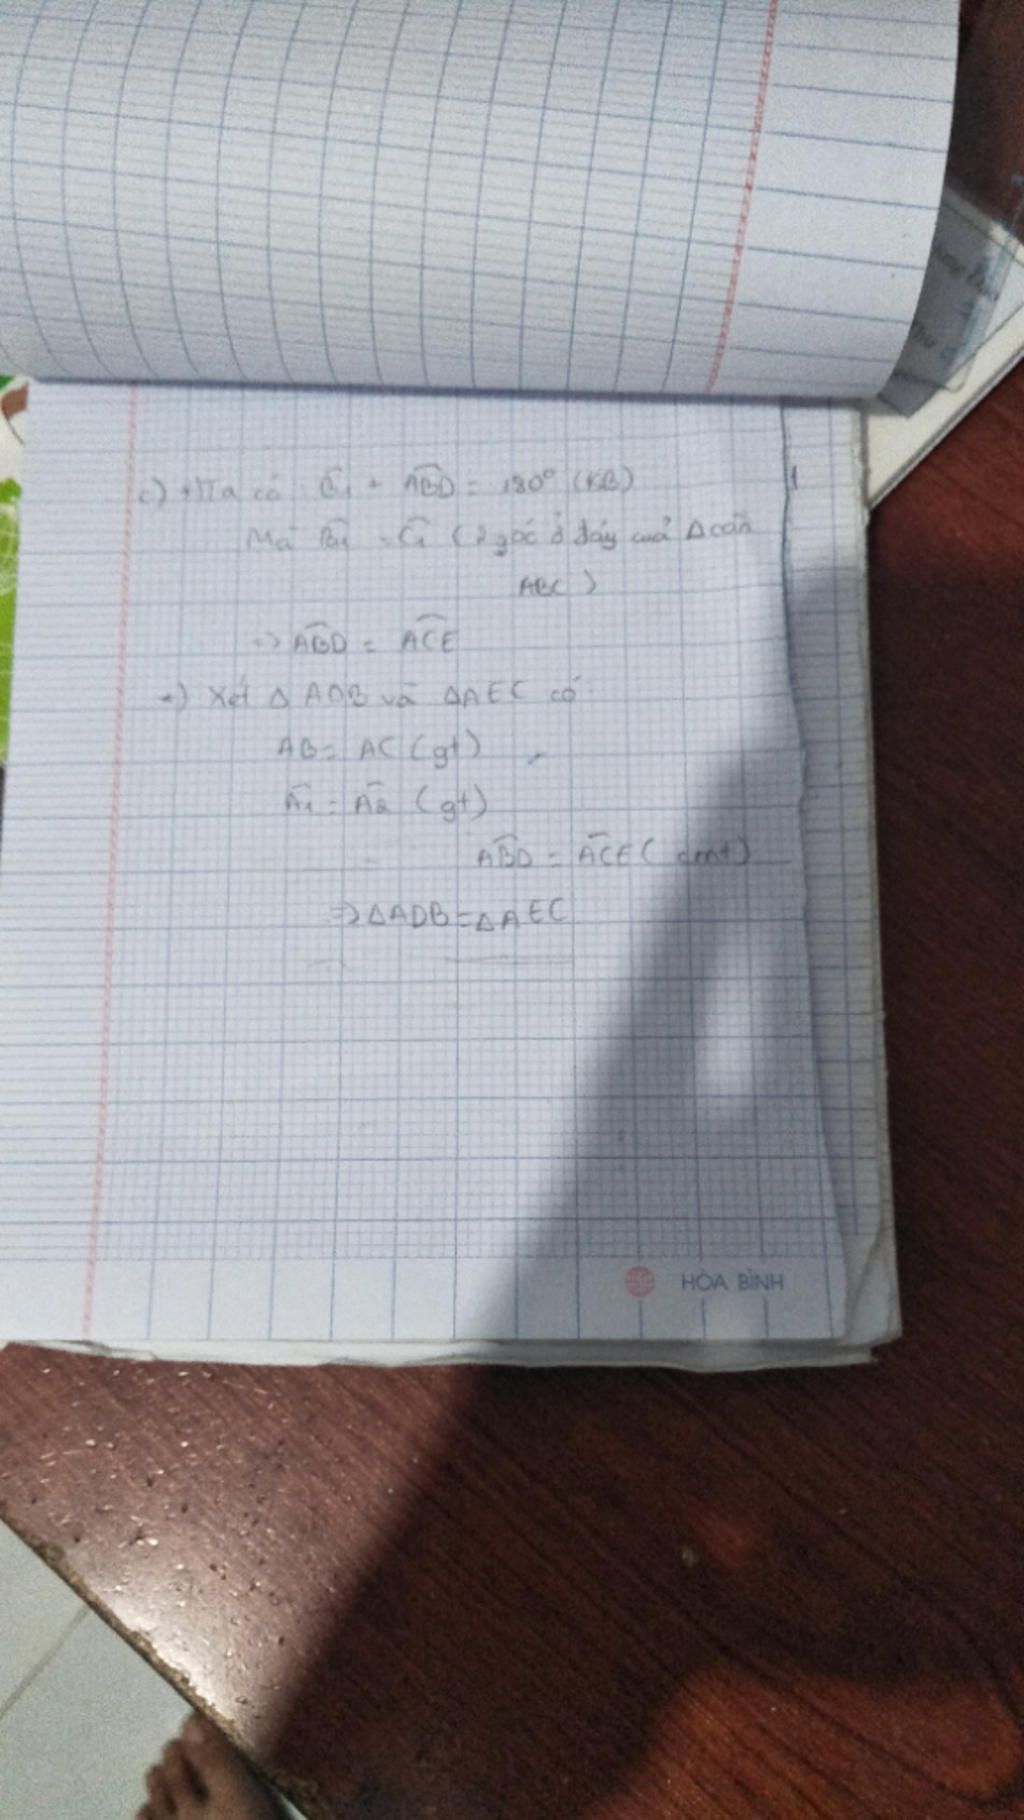 c) +) Ta có: B̂₁ + ABD̂ = 180° (KB)
Mà B̂₁ = Ĉ₁ (2 góc ở đáy của Δ cân
ABC)
=> ABD̂ = ACÊ
+) Xét Δ ADB và ΔAEC có:
AB = AC (gt)
Â₁ = Â₂ (gt)
ABD̂ = ACÊ (cmt)
=> ΔADB = ΔAEC
HÒA BÌNH